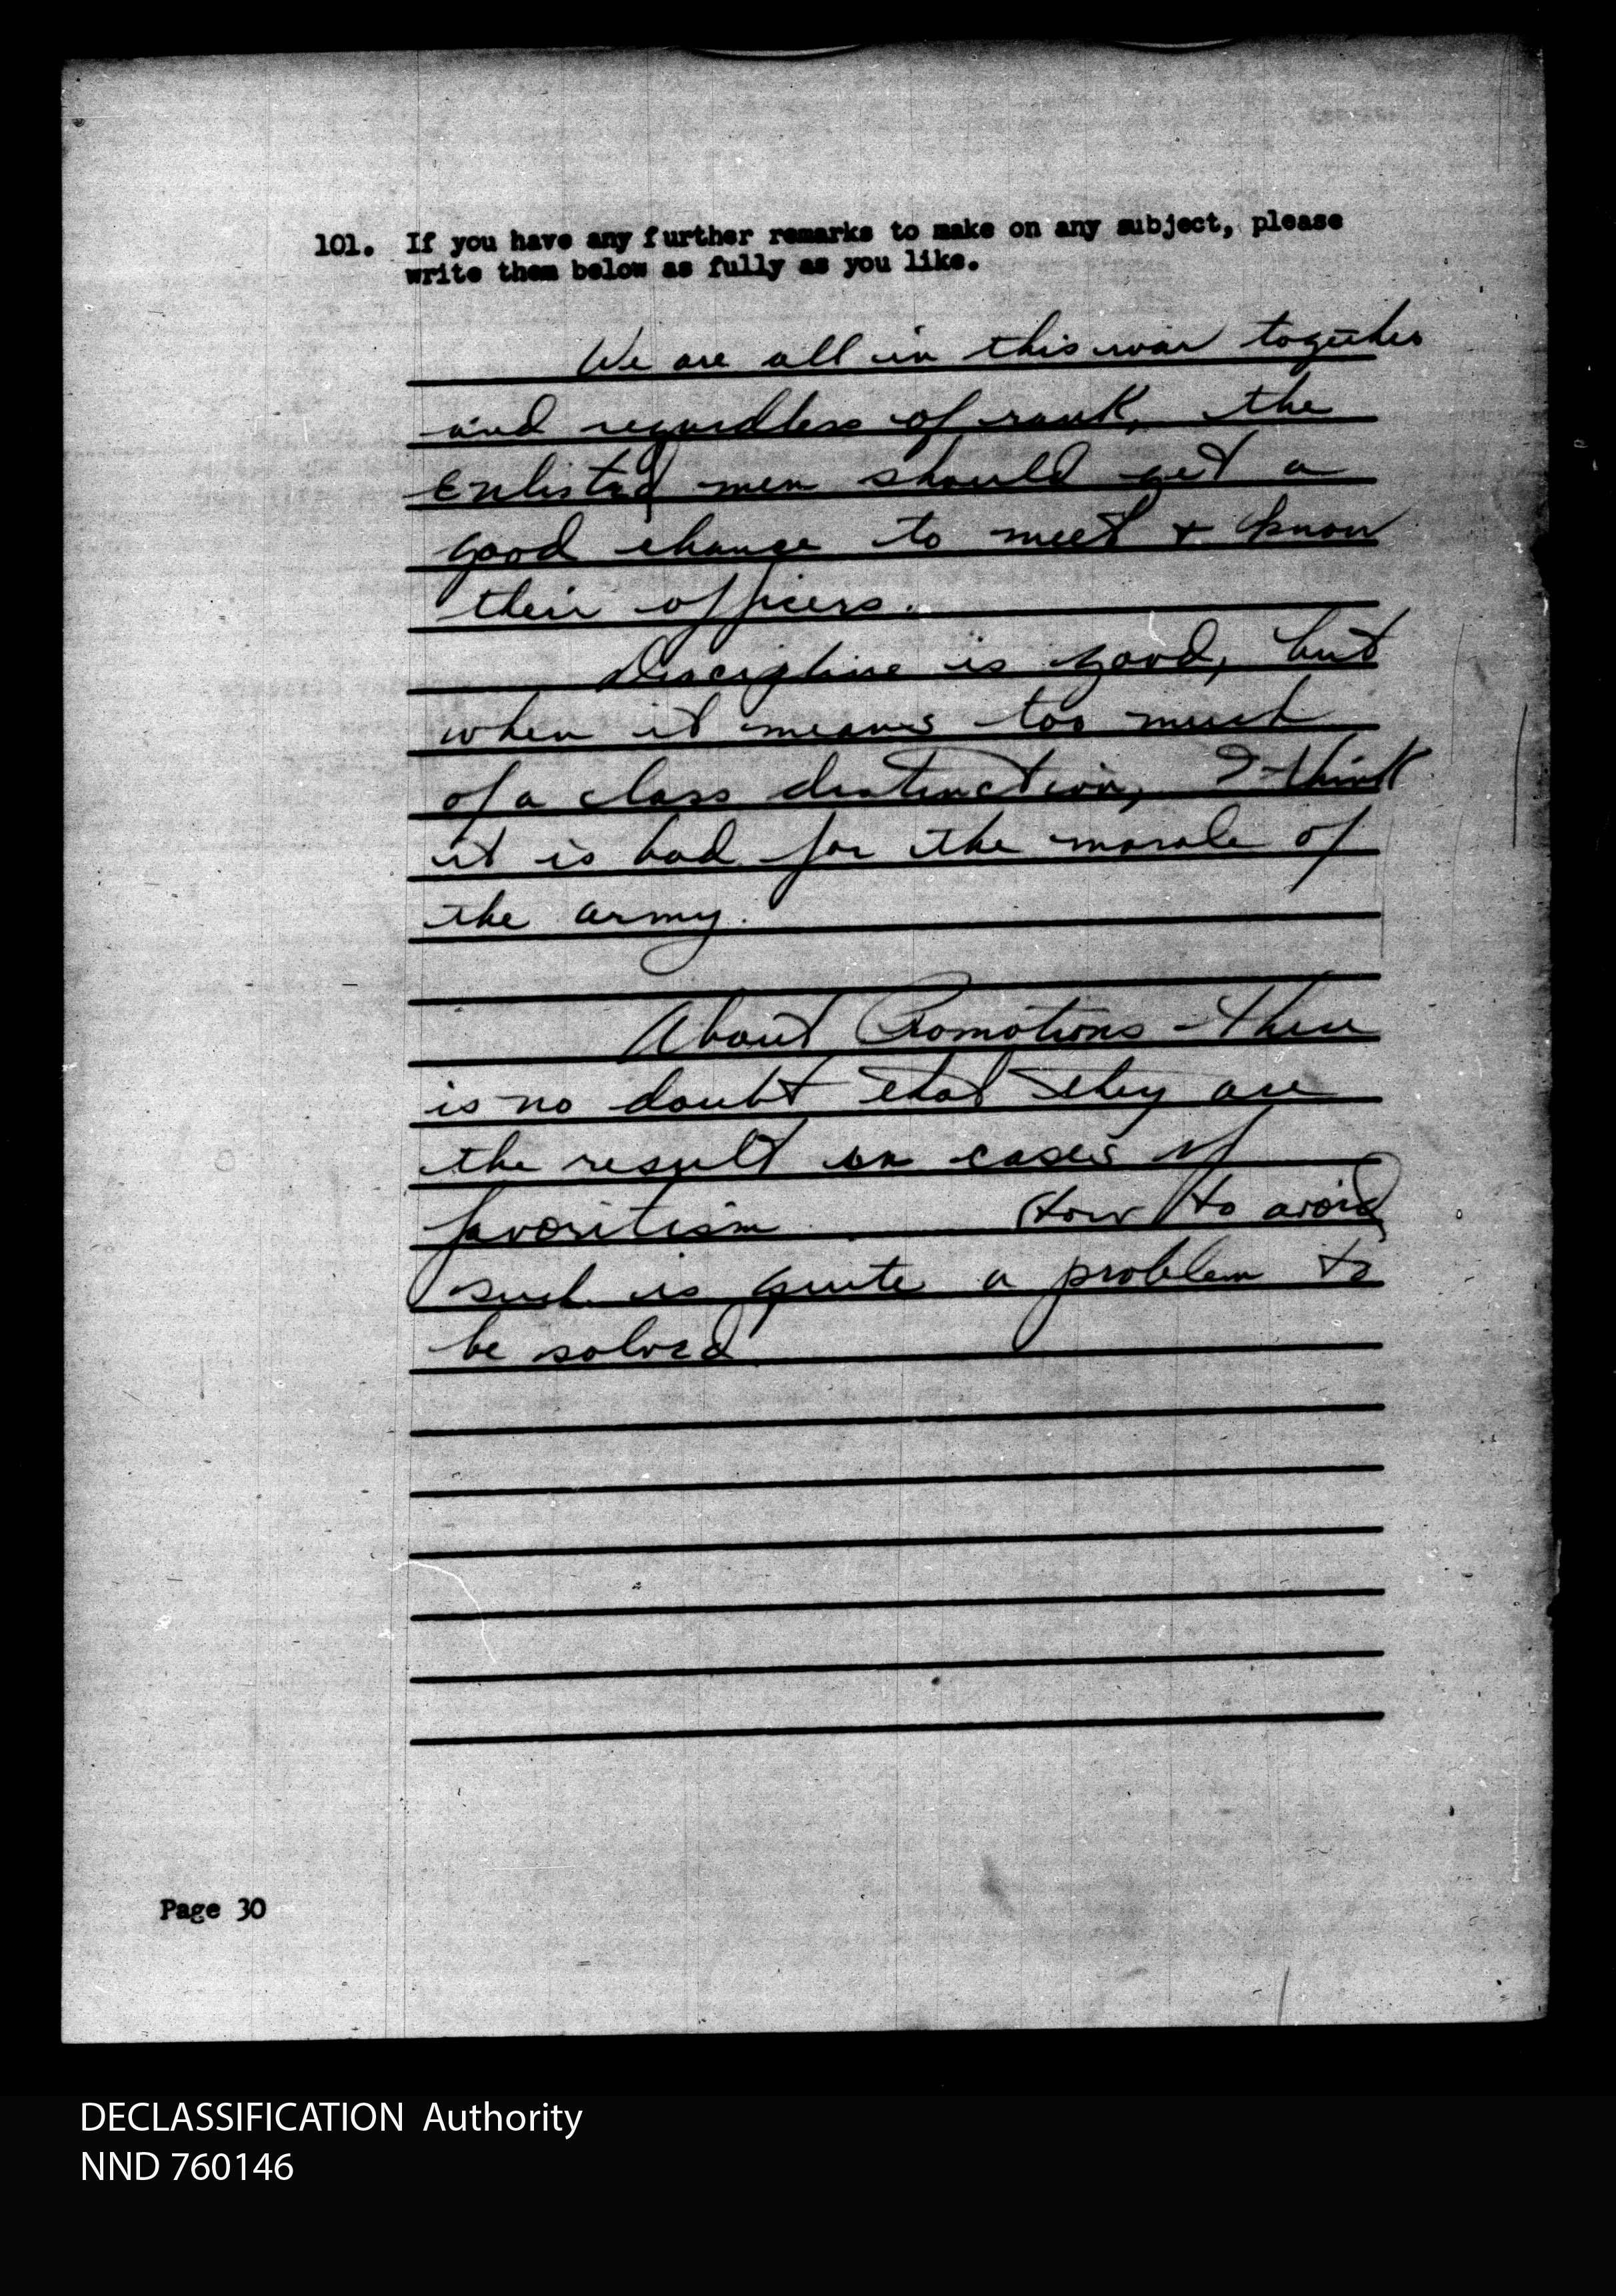 101. If you have any further remarks to make on any subject, please
write them below as fully as you like.
We are all in this war together
and regardless of rank, the
Enlisted men should get a
good chance to meet + know
their officers.
Discipline is good, but
when it means too much
of a class distinction, I think
it is bad for the morale of
the army.
About Promotions - there
is no doubt that they are
the result in cases of
favoritism. How to avoid
such is quite a problem to
be solved
Page 30
DECLASSIFICATION Authority
NND 760146